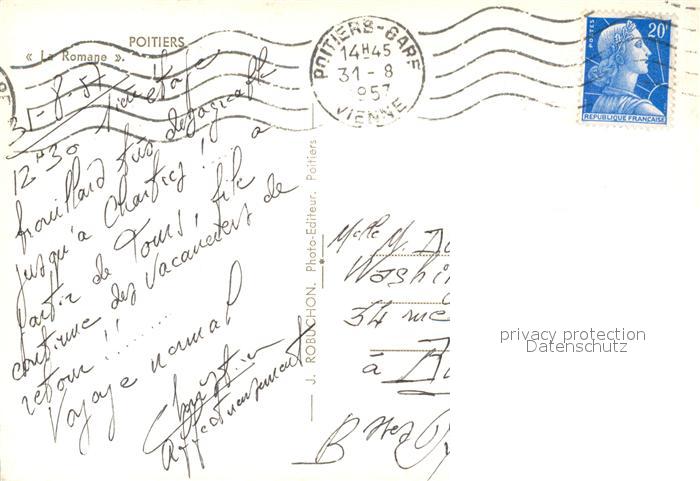 POITIERS
« La Romane ».
POITIERS-GARE
14H45
31-8
1957
VIENNE
POSTES
20F
REPUBLIQUE FRANÇAISE
31-8-57
12H30 1ère étape.
brouillard très désagréable
jusqu'à Chartres !! ..... a
partir de Tours, file
continue des vacanciers de
retour !! .........
Voyage normal
Christian
Affectueusement
J. ROBUCHON. Photo-Editeur. Poitiers
Melle M.
Washin
34 rue
à
privacy protection
Datenschutz